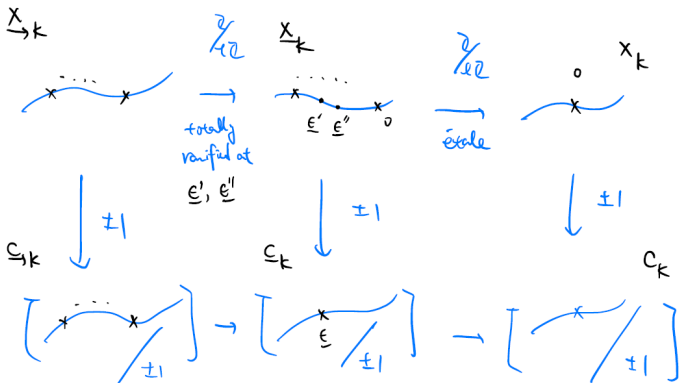 X→K
ℤ/ℓℤ
X̲K
ℤ/ℓℤ
XK
. . . .
. . . . .
0
ε̲' ε̲''
0
totally
ramified at
ε̲', ε̲''
étale
±1
±1
±1
C→K
C̲K
CK
. . . .
ε̲
±1
±1
±1